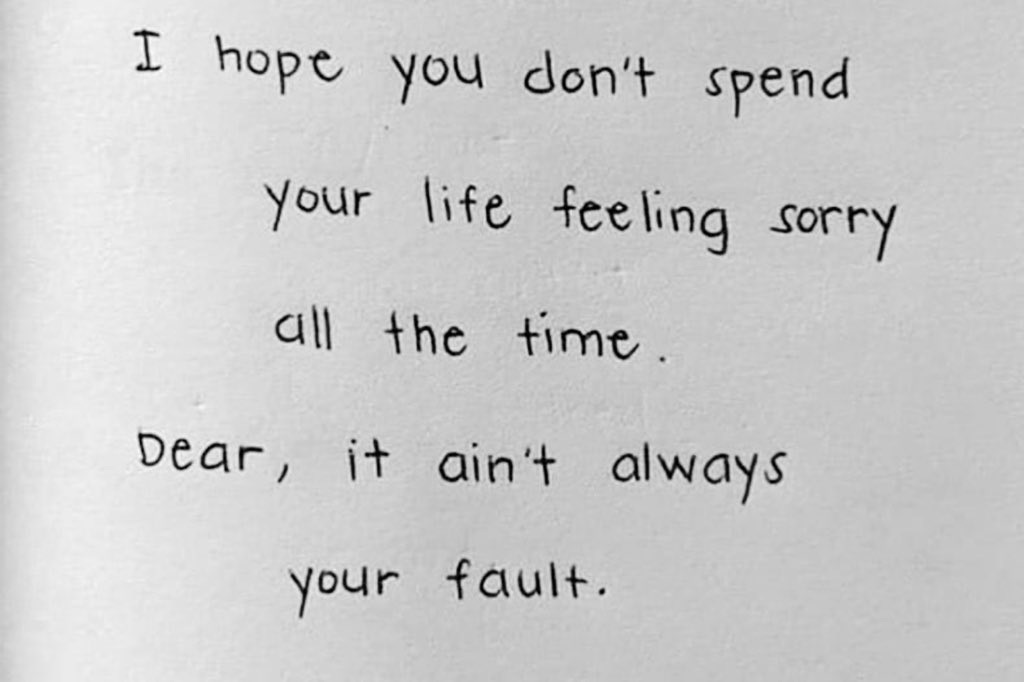 I hope you don't spend
your life feeling sorry
all the time.
Dear, it ain't always
your fault.